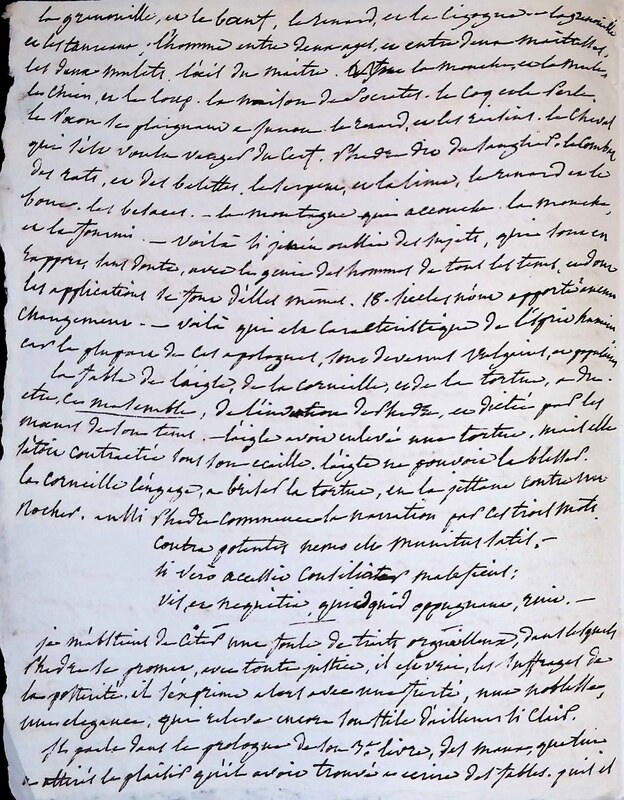 la grenouille, et le bœuf, le renard, et la cigogne - la grenouille
et les taureaux; l'homme entre deux ages, et entre deux maitresses,
les deux mulets. l'œil du maitre. la mouche, et la mule,
le chien, et le loup. la maison de Socrates. le coq et la perle.
le paon se plaignant a junon. le renard, et les raisins. le cheval
qui s'est voulu venger du cerf, Phedre dit du sanglier. le combat
des rats, et des belettes. le serpent, et la lime, le renard et le
bouc. les besaces. - la montagne qui accouche. la mouche,
et la fourmi. - voilà si je n'en oublie des sujets, qui sont en
rapport, sans doute, avec le genie des hommes de tous les tems, et dont
les applications se font d'elles mêmes. 18. siecles n'ont apporté aucun
changement. - voilà qui est caracteristique de l'esprit humain
car la plupart de ces apologues, sont devenus vulgaires, et populaires
la fable de l'aigle, de la corneille, et de la tortue, a du
etre, ce me semble, de l'invention de Phedre, et dictée par les
mœurs de son tems. - l'aigle avoit enlevé une tortue. mais elle
s'étoit contractée sous son ecaille. l'aigle ne pouvoit la blesser.
la corneille l'engage, a briser la tortue, en la jettant contre un
rocher. aussi Phedre commence la narration par ces trois mots.
contra potentes nemo est munitus satis. -
si vero accessit consiliator maleficus;
vis, et nequitia quidquid oppugnant, ruit. -
je m'abstiens de citer une foule de traits orgueilleux, dans lesquels
Phedre se promet, avec toute justice, il est vrai, les suffrages de
la posterité. il s'exprime alors avec une fierté, une noblesse,
une elegance, qui releve encore son stile d'ailleurs si clair.
Il parle dans le prologue de son 3e. livre, des maux, que lui
attirés le plaisir qu'il avoit trouvé a ecrire des fables. qu'il